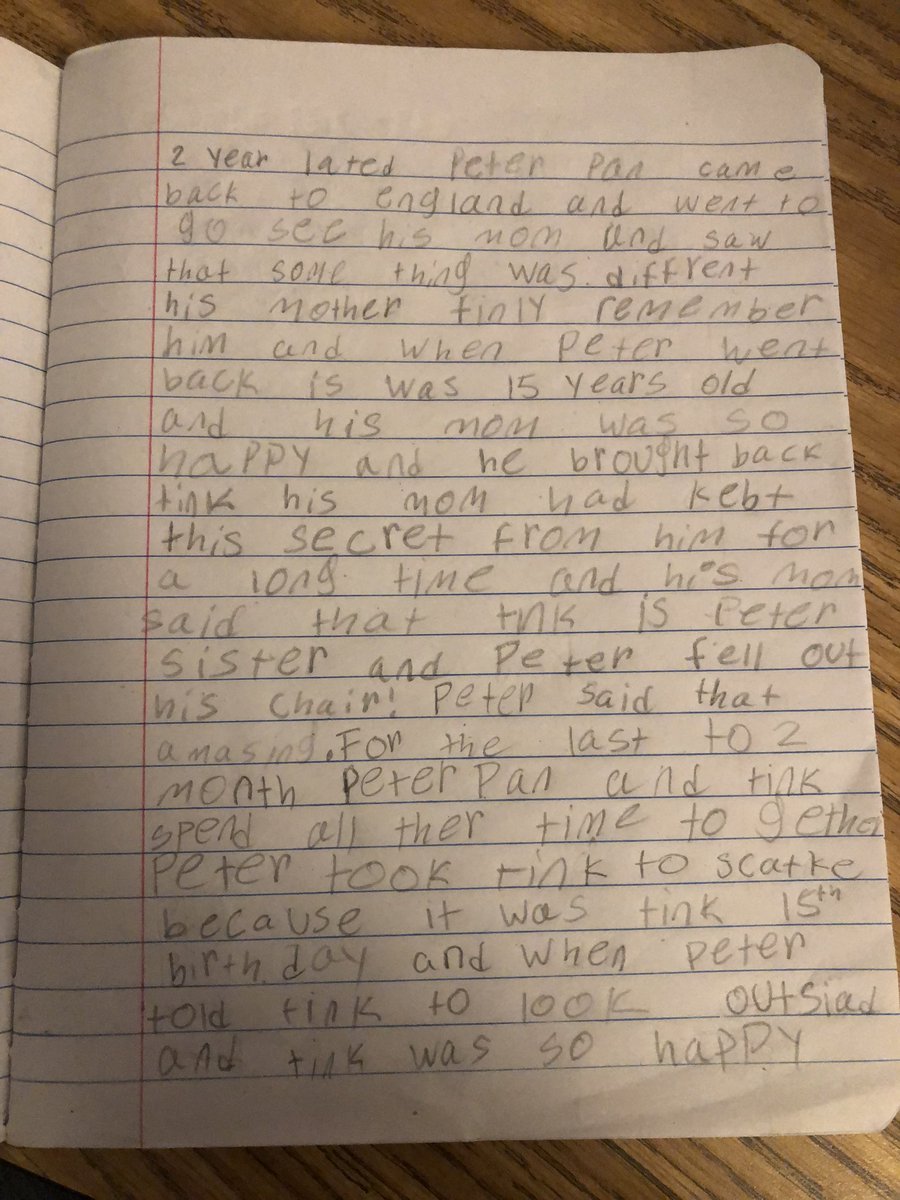 2 year lated Peter Pan came
back to england and went to
go see his mom and saw
that some thing was diffrent
his mother finly remember
him and when Peter went
back is was 15 years old
and his mom was so
happy and he brought back
tink his mom had kebt
this secret from him for
a long time and his mom
said that tnk is Peter
sister and Peter fell out
his chair! Peter said that
amasing. For the last to 2
month Peter Pan and tink
spend all ther time to gether
Peter took tink to scatke
because it was tink 15th
birth day and when Peter
told tink to look outsiad
and tink was so happy